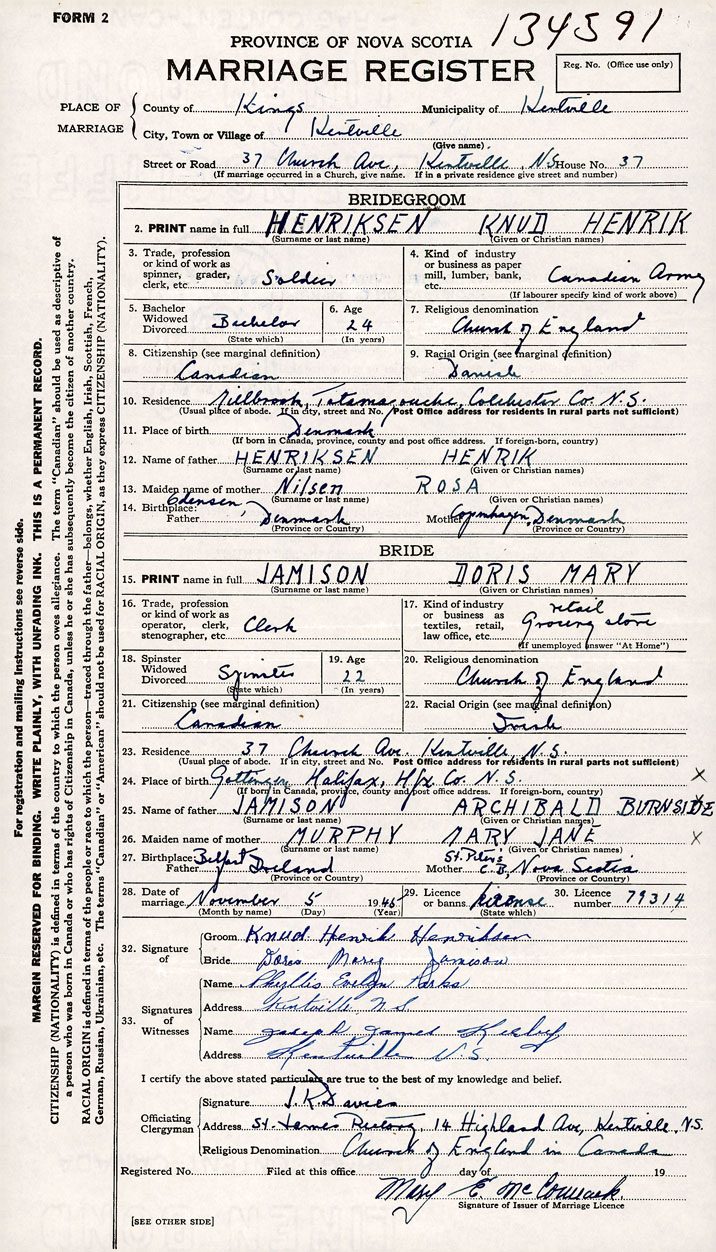 FORM 2
134591
PROVINCE OF NOVA SCOTIA
MARRIAGE REGISTER
Reg. No. (Office use only)
PLACE OF MARRIAGE
County of Kings Municipality of Kentville
City, Town or Village of Kentville
(Give name)
Street or Road 37 Church Ave, Kentville, N.S. House No. 37
(If marriage occurred in a Church, give name. If in a private residence give street and number)
BRIDEGROOM
2. PRINT name in full HENRIKSEN KNUD HENRIK
(Surname or last name) (Given or Christian names)
3. Trade, profession or kind of work as spinner, grader, clerk, etc. Soldier
4. Kind of industry or business as paper mill, lumber, bank, etc. Canadian Army
(If labourer specify kind of work above)
5. Bachelor Widowed Divorced Bachelor
(State which)
6. Age 24
(In years)
7. Religious denomination
Church of England
8. Citizenship (see marginal definition)
Canadian
9. Racial Origin (see marginal definition)
Danish
10. Residence Millbrook, Tatamagouche, Colchester Co. N.S.
(Usual place of abode. If in city, street and No. Post Office address for residents in rural parts not sufficient)
11. Place of birth Denmark
(If born in Canada, province, county and post office address. If foreign-born, country)
12. Name of father HENRIKSEN HENRIK
(Surname or last name) (Given or Christian names)
13. Maiden name of mother Nilsen ROSA
(Surname or last name) (Given or Christian names)
14. Birthplace:
Father Denmark Mother Copenhagen, Denmark
(Province or Country) (Province or Country)
BRIDE
15. PRINT name in full JAMISON DORIS MARY
(Surname or last name) (Given or Christian names)
16. Trade, profession or kind of work as operator, clerk, stenographer, etc. Clerk
17. Kind of industry or business as textiles, retail, law office, etc. retail Grocery store
(If unemployed answer "At Home")
18. Spinster Widowed Divorced Spinster
(State which)
19. Age
22
(In years)
20. Religious denomination
Church of England
21. Citizenship (see marginal definition)
Canadian
22. Racial Origin (see marginal definition)
Irish
23. Residence 37 Church Ave. Kentville, N.S.
(Usual place of abode. If in city, street and No. Post Office address for residents in rural parts not sufficient)
24. Place of birth Gottingen Halifax, Hfx Co. N.S. X
(If born in Canada, province, county and post office address. If foreign-born, country)
25. Name of father JAMISON ARCHIBALD BURNSIDE
(Surname or last name) (Given or Christian names)
26. Maiden name of mother MURPHY MARY JANE X
(Surname or last name) (Given or Christian names)
27. Birthplace: Belfast St. Peter's
Father Ireland Mother C.B. Nova Scotia
(Province or Country) (Province or Country)
28. Date of marriage November 5 1945
(Month by name) (Day) (Year)
29. Licence or banns. license
(State which)
30. Licence number 79314
32. Signature of
Groom Knud Henrik Henriksen
Bride Doris Mary Jamison
33. Signatures of Witnesses
Name Phyllis Evelyn Parks
Address Kentville N.S.
Name Joseph James
Address Kentville N.S.
I certify the above stated particulars are true to the best of my knowledge and belief.
Officiating Clergyman
Signature J.K. Davies
Address St. James Rectory, 14 Highland Ave, Kentville, N.S.
Religious Denomination Church of England in Canada
Registered No. Filed at this office day of 19
Mary E. McCormack
Signature of Issuer of Marriage Licence
[SEE OTHER SIDE]
For registration and mailing instructions see reverse side.
MARGIN RESERVED FOR BINDING. WRITE PLAINLY, WITH UNFADING INK. THIS IS A PERMANENT RECORD.
CITIZENSHIP (NATIONALITY) is defined in terms of the country to which the person owes allegiance. The term "Canadian" should be used as descriptive of
a person who was born in Canada or who has rights of Citizenship in Canada, unless he or she has subsequently become the citizen of another country.
RACIAL ORIGIN is defined in terms of the people or race to which the person—traced through the father—belongs, whether English, Irish, Scottish, French,
German, Russian, Ukrainian, etc. The terms "Canadian" or "American" should not be used for RACIAL ORIGIN, as they express CITIZENSHIP (NATIONALITY).